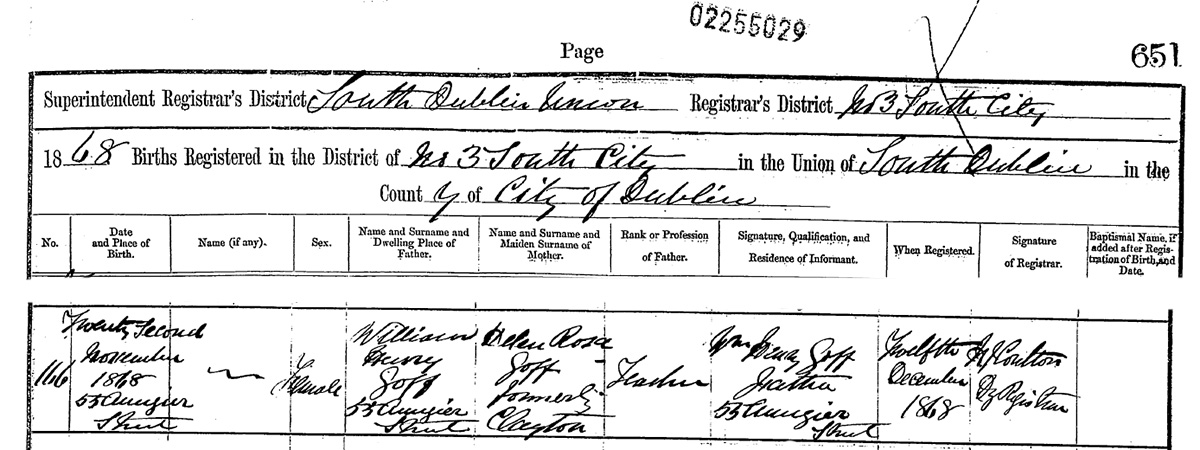 02255029
Page
651
Superintendent Registrar's District South Dublin Union Registrar's District No 3 South City
1868 Births Registered in the District of No 3 South City in the Union of South Dublin in the
County of City of Dublin
No.
Date
and Place of
Birth.
Name (if any).
Sex.
Name and Surname and
Dwelling Place of
Father.
Name and Surname and
Maiden Surname of
Mother.
Rank or Profession
of Father.
Signature, Qualification, and
Residence of Informant.
When Registered.
Signature
of Registrar.
Baptismal Name, if
added after Regis-
tration of Birth, and
Date.
166
Twenty Second
November
1868
55 Aungier
Street
Female
William
Henry
Goff
55 Aungier
Street
Helen Rosa
Goff
formerly
Clayton
Teacher
Wm Henry Goff
Father
55 Aungier
Street
Twelfth
December
1868
Coulton
Dy Registrar